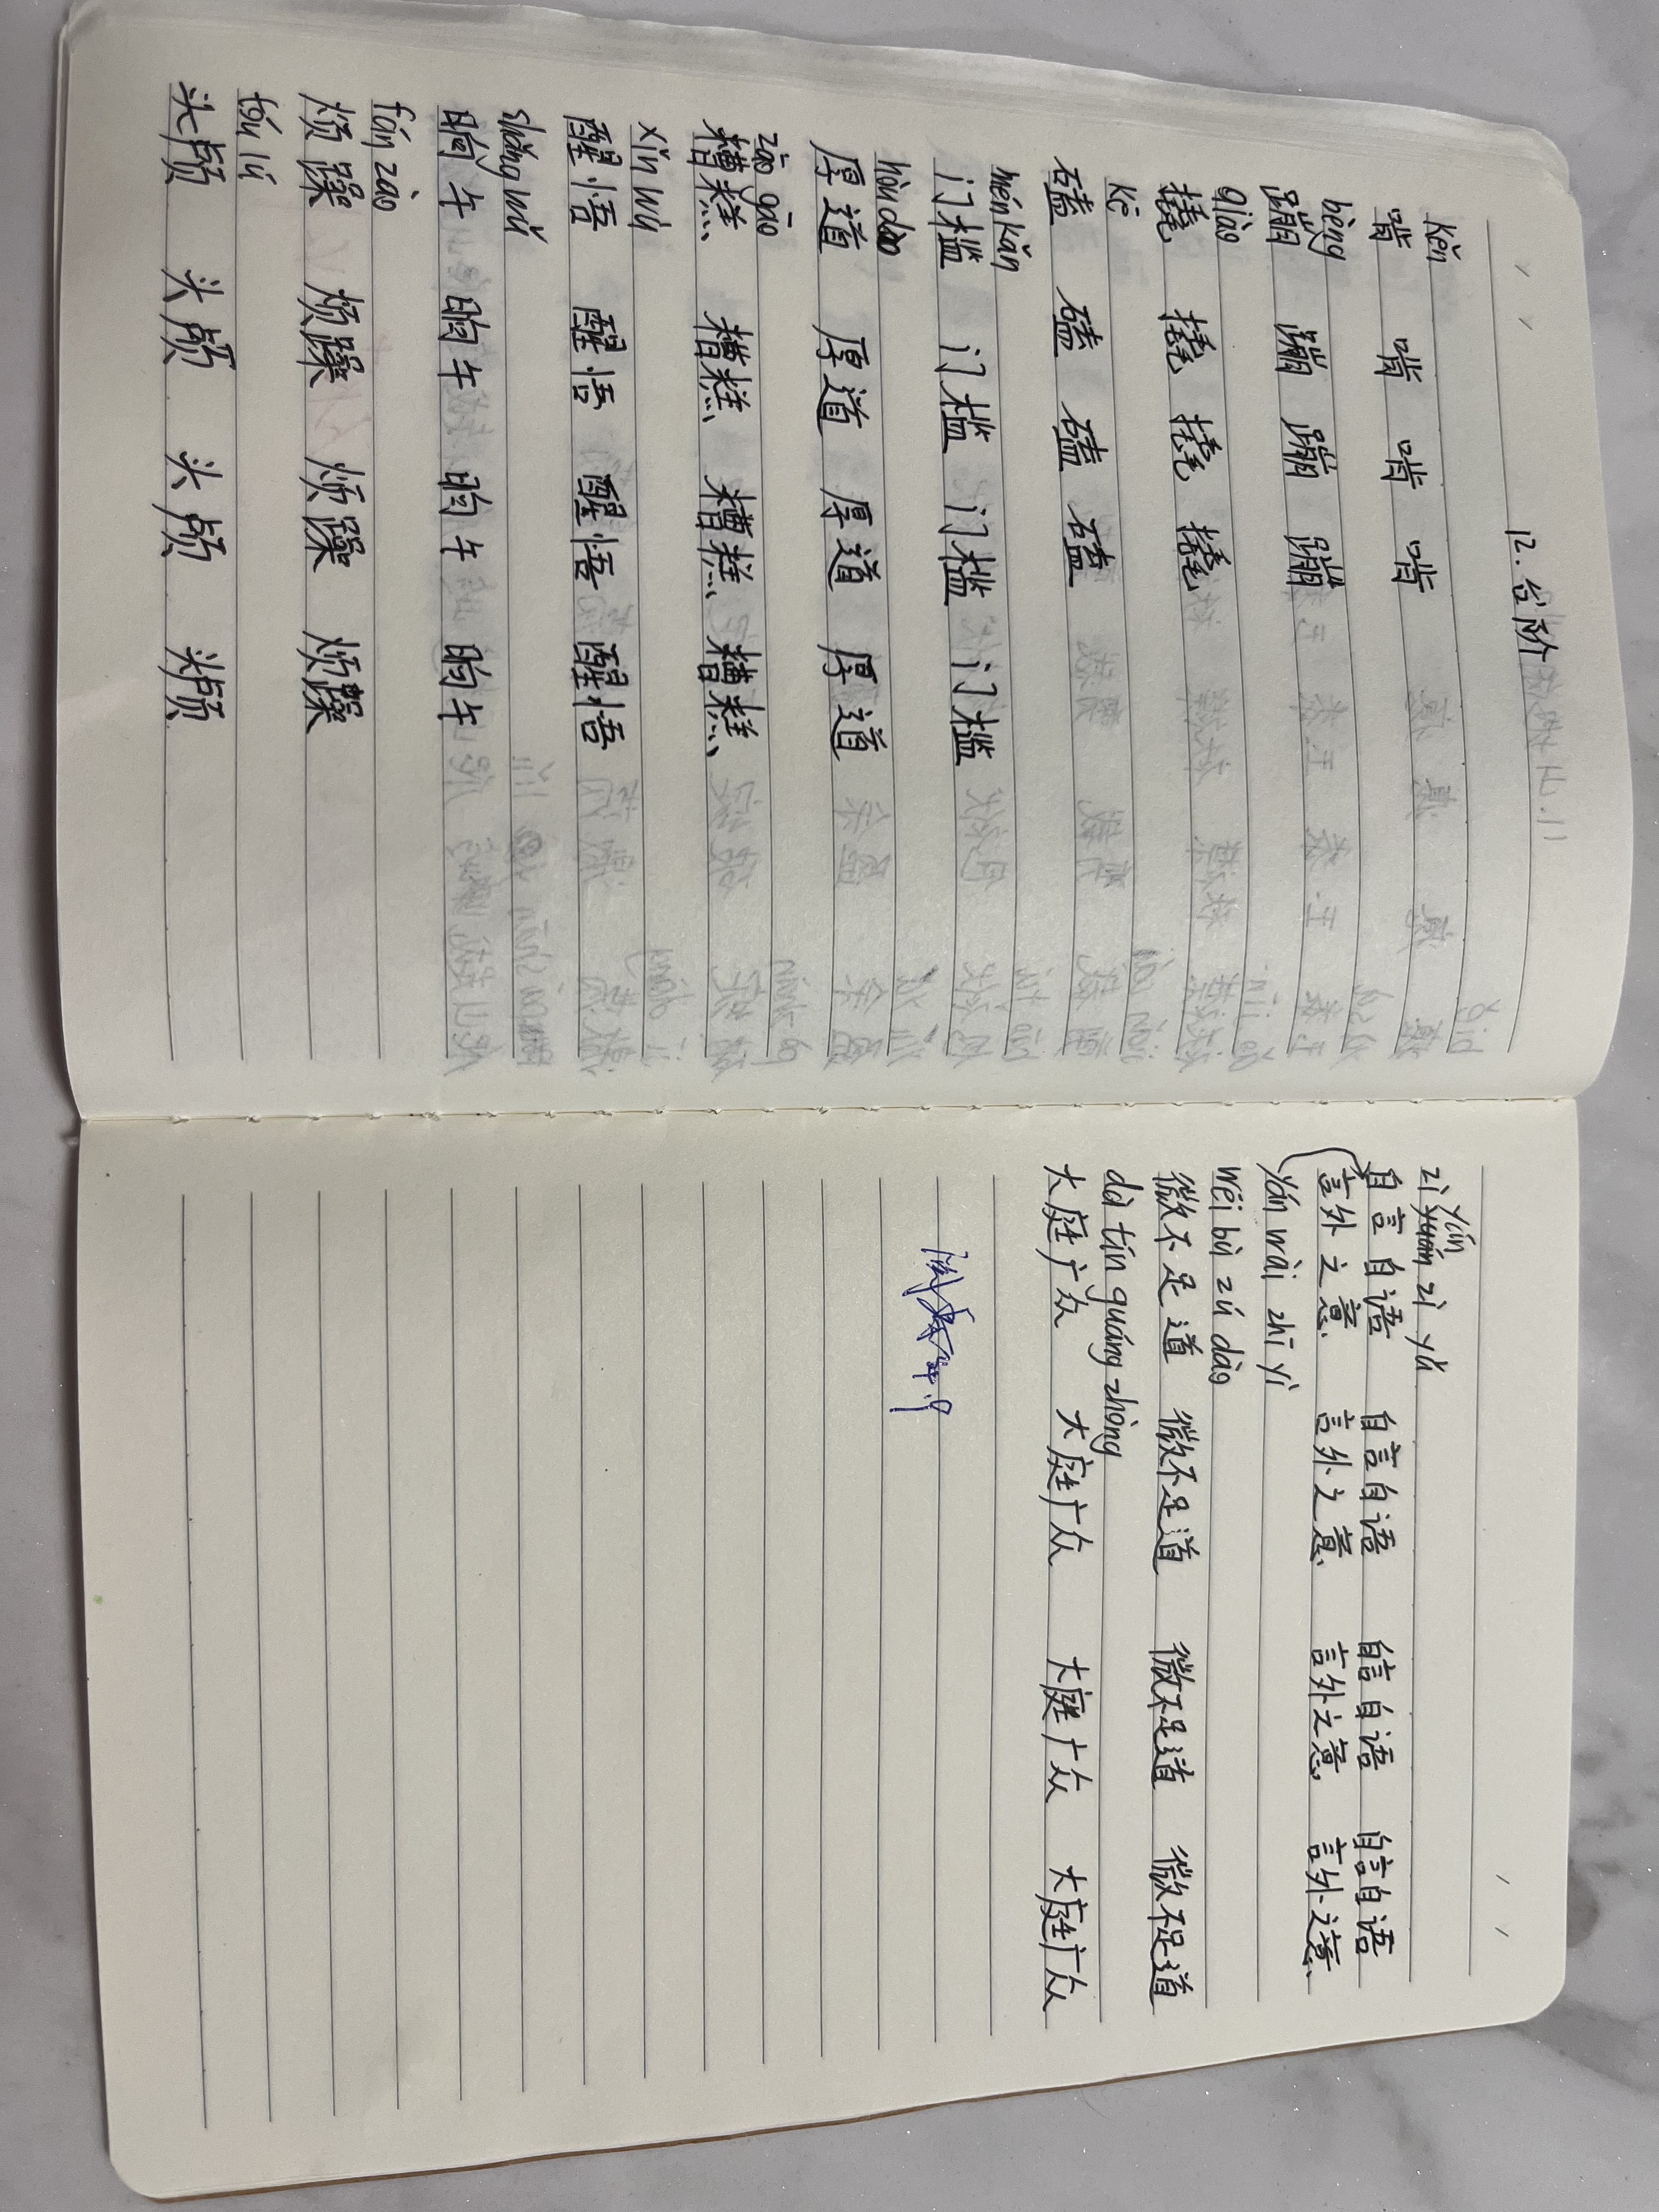 12.台阶
kěn
啃 啃 啃 啃
bèng
蹦 蹦 蹦 蹦
qiào
撬 撬 撬 撬
kē
磕 磕 磕 磕
mén kǎn
门槛 门槛 门槛 门槛
hòu dao
厚道 厚道 厚道 厚道
zāo gāo
糟糕 糟糕 糟糕 糟糕
xǐn wù
醒悟 醒悟 醒悟 醒悟
shǎng wǔ
晌午 晌午 晌午 晌午
fán zào
烦躁 烦躁 烦躁 烦躁
tóu lú
头颅 头颅 头颅 头颅
zì yán zì yǔ
自言自语 自言自语 自言自语 自言自语
言外之意 言外之意 言外之意 言外之意
yán wài zhī yì
wēi bù zú dào
微不足道 微不足道 微不足道 微不足道
dà tín guǎng zhòng
大庭广众 大庭广众 大庭广众 大庭广众